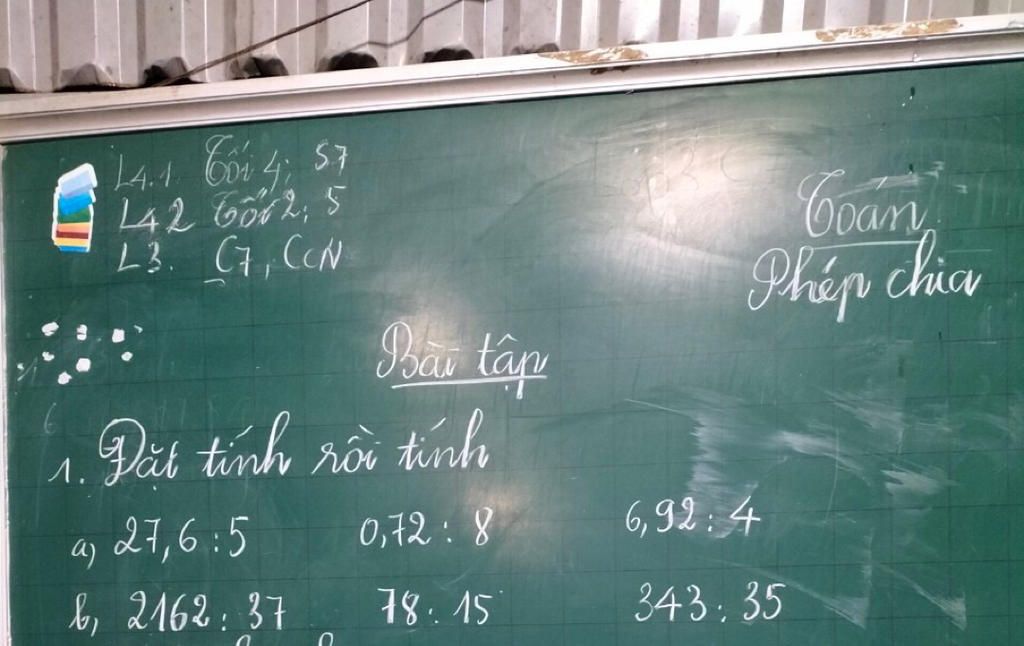 L4.1 Tối 4; S7
L4.2 Tối 2; 5
L3. C7, CcN
Toán
Phép chia
Bài tập
1. Đặt tính rồi tính
a, 27,6 : 5 0,72 : 8 6,92 : 4
b, 2162 : 37 78 : 15 343 : 35